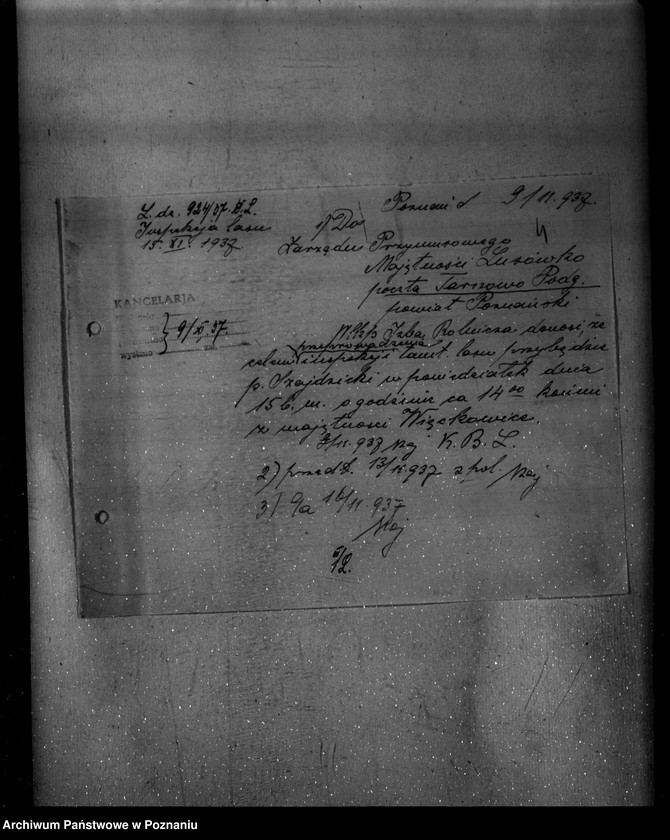 L. dz. 924/37. B.L.
Inspekcja lasu
15. XI. 1937
Poznań d 9/11.937.
1/ Do
Zarządu Przymusowego
Majętności Lusówko
poczta Tarnowo Podg.
powiat Poznański
KANCELARJA
9/XI.37.
wysłano
Wlkp. Izba Rolnicza donosi, że
celem przeprowadzenia inspekcji tamt. lasu przybędzie
p. Szajdzicki w poniedziałek dnia
15 b. m. o godzinie ca 14 00 końmi
z majętności Więckowice.
9/11.937 K. B. L.
2) przedł. 13/11.937 z pol.
3/ a 16/11 937
Archiwum Państwowe w Poznaniu